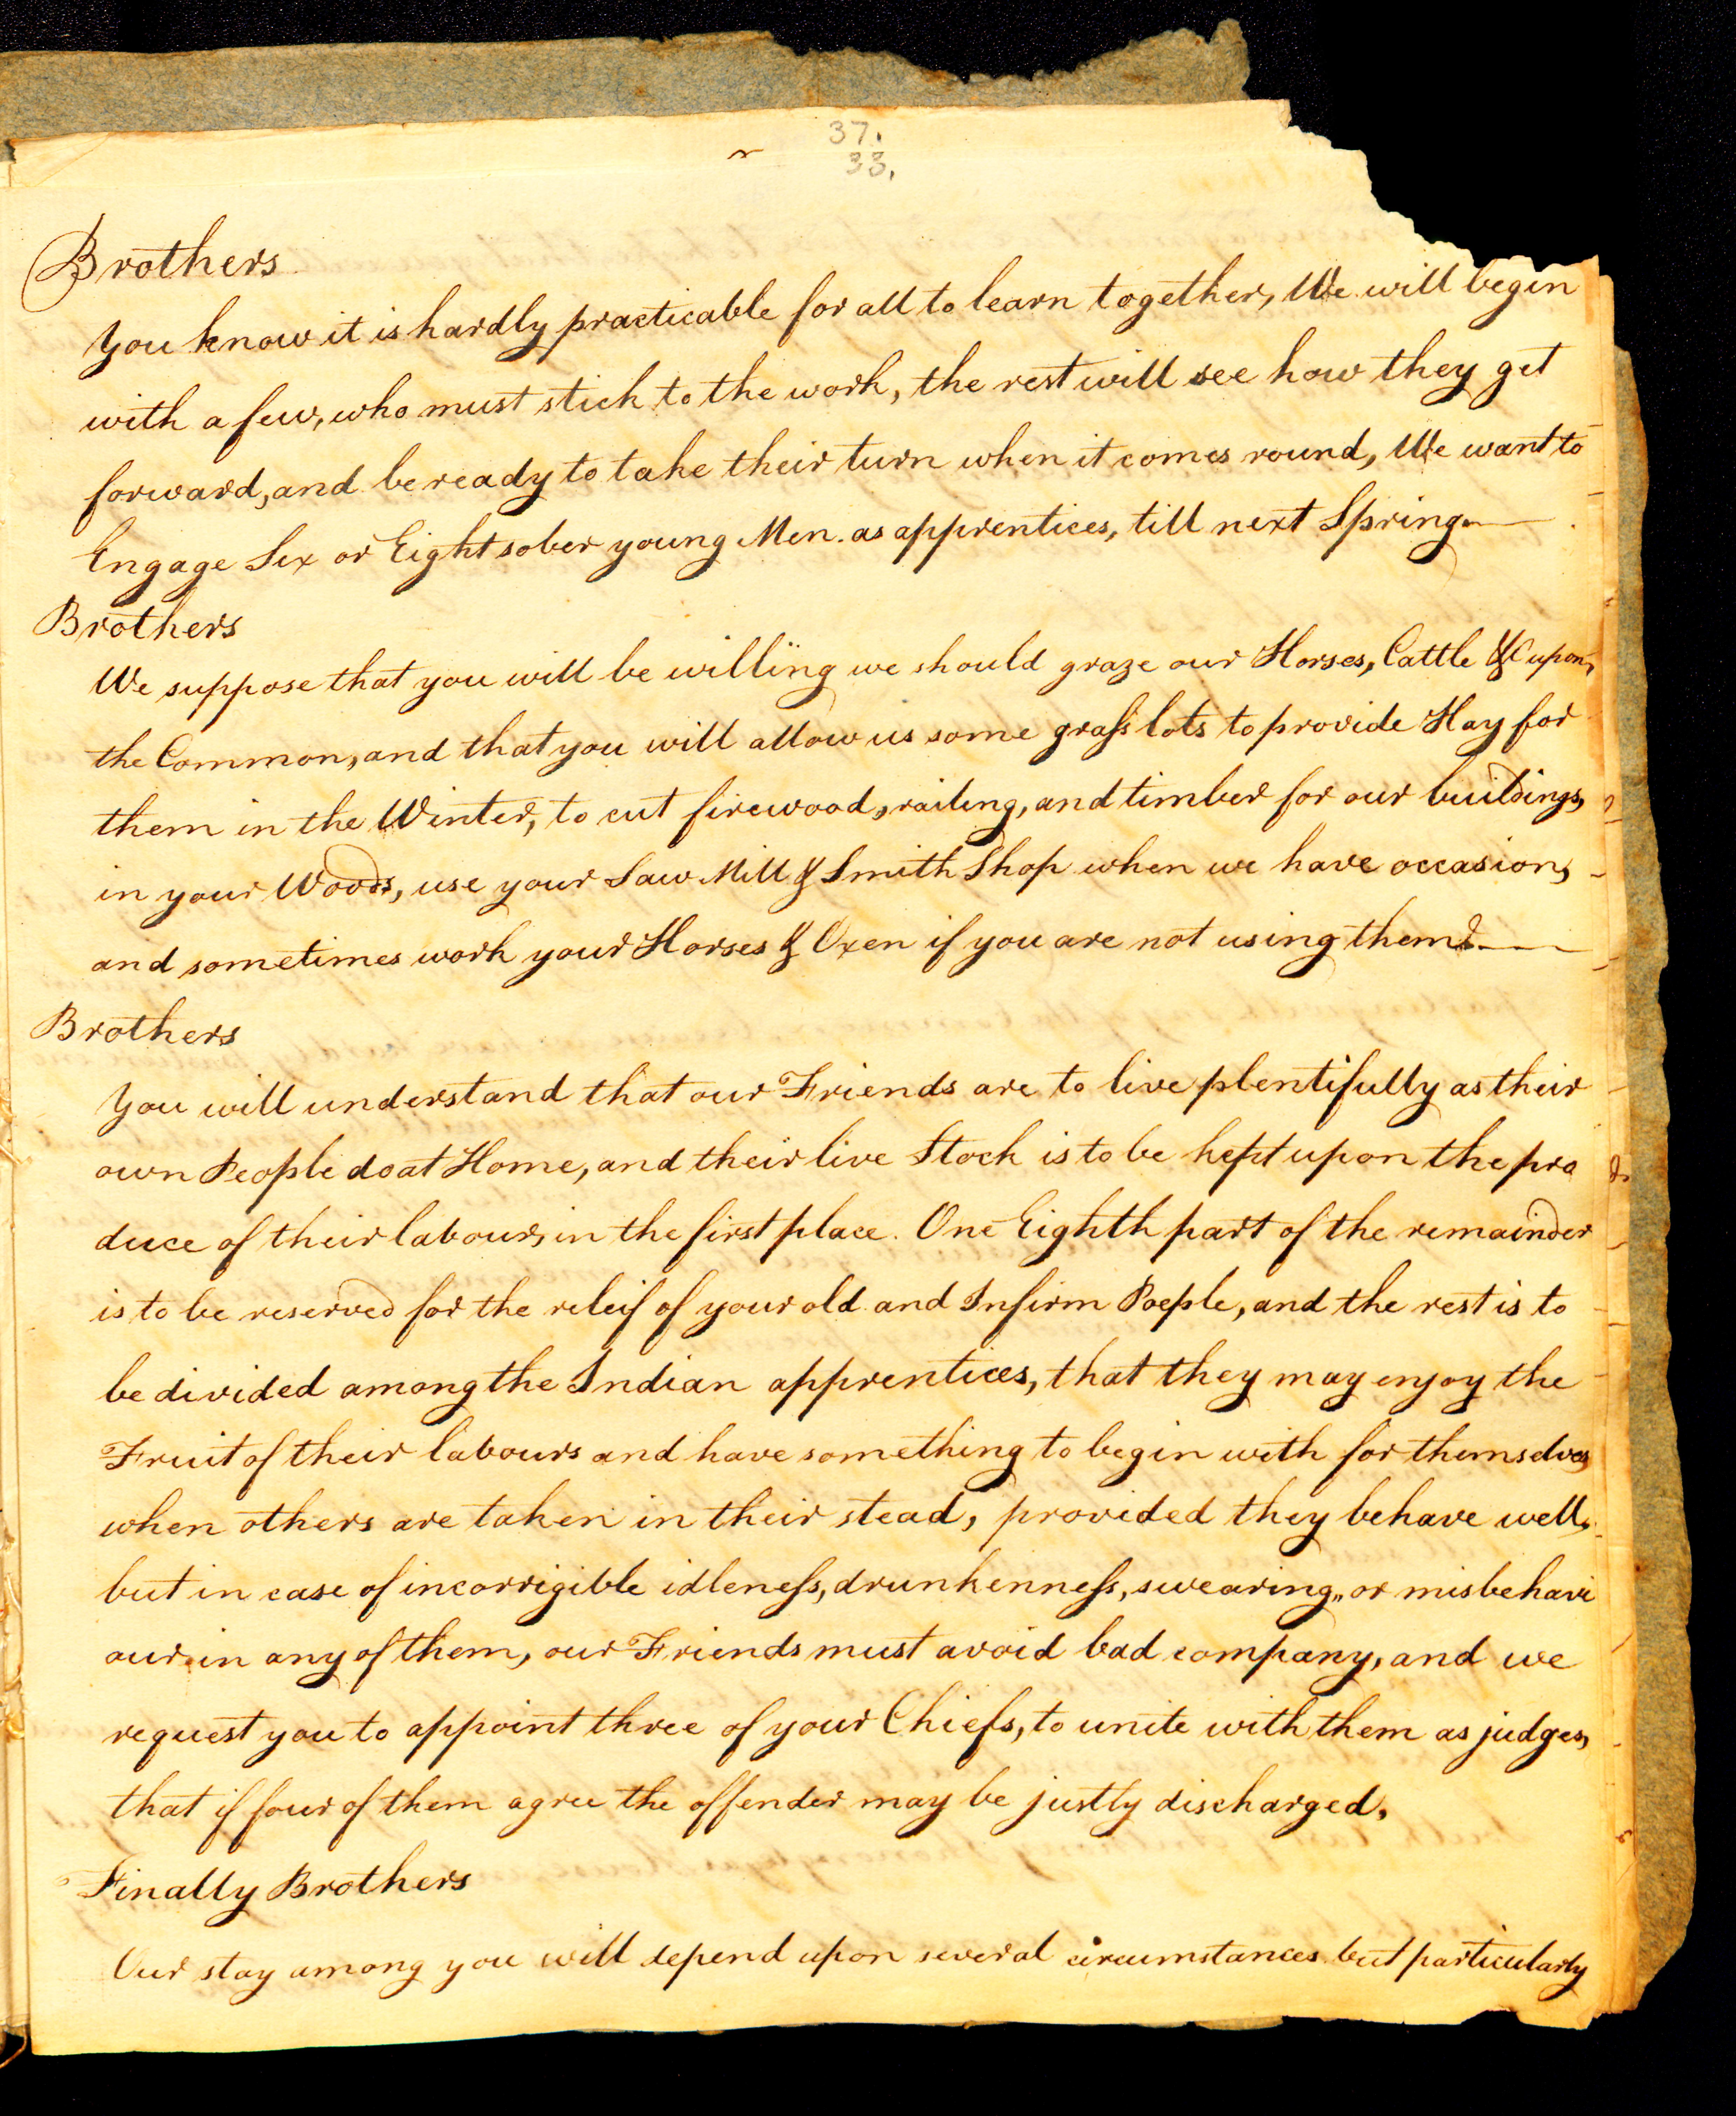 37.
33.
Brothers
You know it is hardly practicable for all to learn together, We will begin
with a few, who must stick to the work, the rest will see how they get
forward, and be ready to take their turn when it comes round, We want to
Engage Six or Eight sober young Men. as apprentices, till next Spring.
Brothers
We suppose that you will be willing we should graze our Horses, Cattle &C upon,
the Common, and that you will allow us some grass lots to provide Hay for
them in the Winter, to cut firewood, railing, and timber for our buildings,
in your Woods, use your Saw Mill & Smith Shop when we have occasion,
and sometimes work your Horses & Oxen if you are not using them.
Brothers
You will understand that our Friends are to live plentifully as their
own People do at Home, and their live Stock is to be kept upon the pro
duce of their labour, in the first place. One Eighth part of the remainder
is to be reserved for the releif of your old and Infirm Poeple, and the rest is to
be divided among the Indian apprentices, that they may enjoy the
Fruit of their labours and have something to begin with for themselves,
when others are taken in their stead, provided they behave well,
but in case of incorrigible idleness, drunkenness, swearing,, or misbehavi
our in any of them, our Friends must avoid bad company, and we
request you to appoint three of your Chiefs, to unite with them as judges,
that if four of them agree the offender may be justly discharged.
Finally Brothers
Our stay among you will depend upon several circumstances but particularly